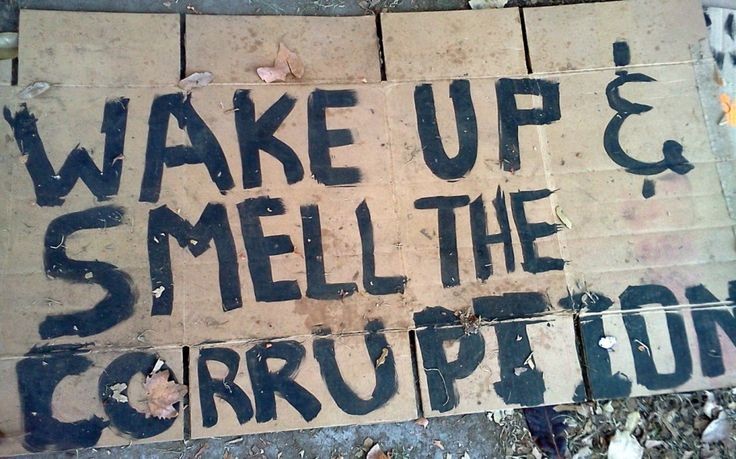 WAKE UP &
SMELL THE
CORRUPTION